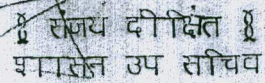 संजय दीक्षित
शासन उप सचिव